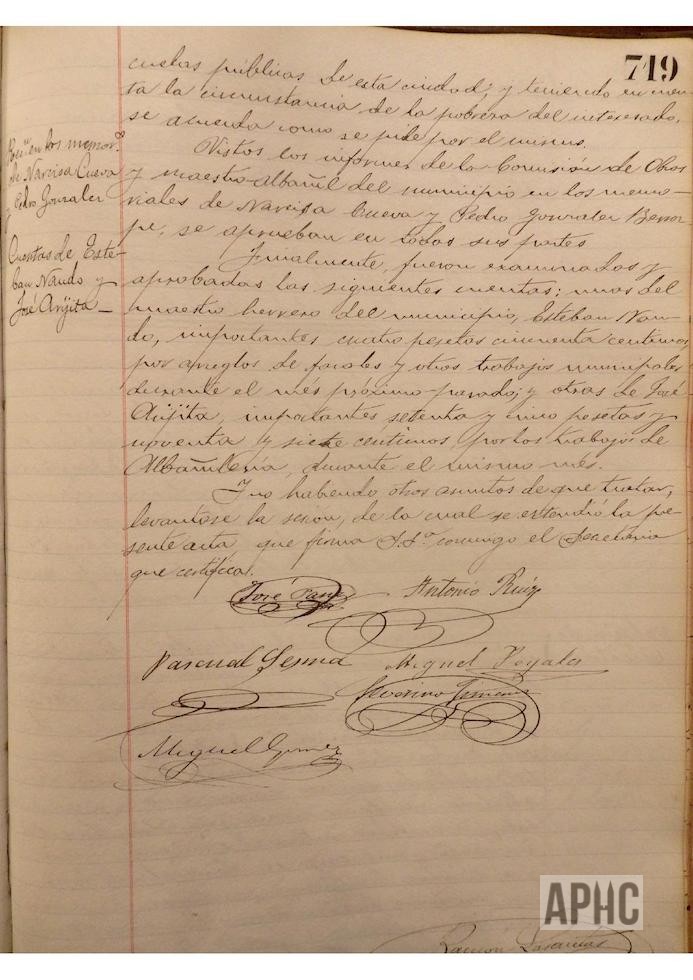 719
cuelas públicas de esta ciudad; y teniendo en cuen-
ta la circunstancia de la pobreza del interesado,
se acuerda como se pide por el mismo.
Vistos los informes de la Comisión de Obras
y maestro-albañil del municipio en los memo-
riales de Narcisa Cueva y Pedro Gonzalez
se aprueban en todas sus partes
Finalmente, fueron examinadas y
aprobadas las siguientes cuentas; unas del
maestro herrero del municipio, Esteban Nau-
do, importantes cuatro pesetas cincuenta centimos
por arreglos de faroles y otros trabajos municipales
durante el mes próximo-pasado; y otras de José
Arijita, importantes setenta y cinco pesetas y
noventa y siete centimos, por los trabajos de
Albañilería, durante el mismo mes.
Y no habiendo otros asuntos de que tratar,
levantose la sesion, de la cual se extendió la pre-
sente acta que firma S.Sª conmigo el Secretario
que certifica.
en los memor.s
de Narcisa Cueva
y Pedro Gonzalez
Cuentas de Este-
ban Naudo y
José Arijita
José
Antonio Ruiz
Pascual Serma
Miguel
Severino Gimenez
Miguel Gomez
Ramón Lasantas
APHC